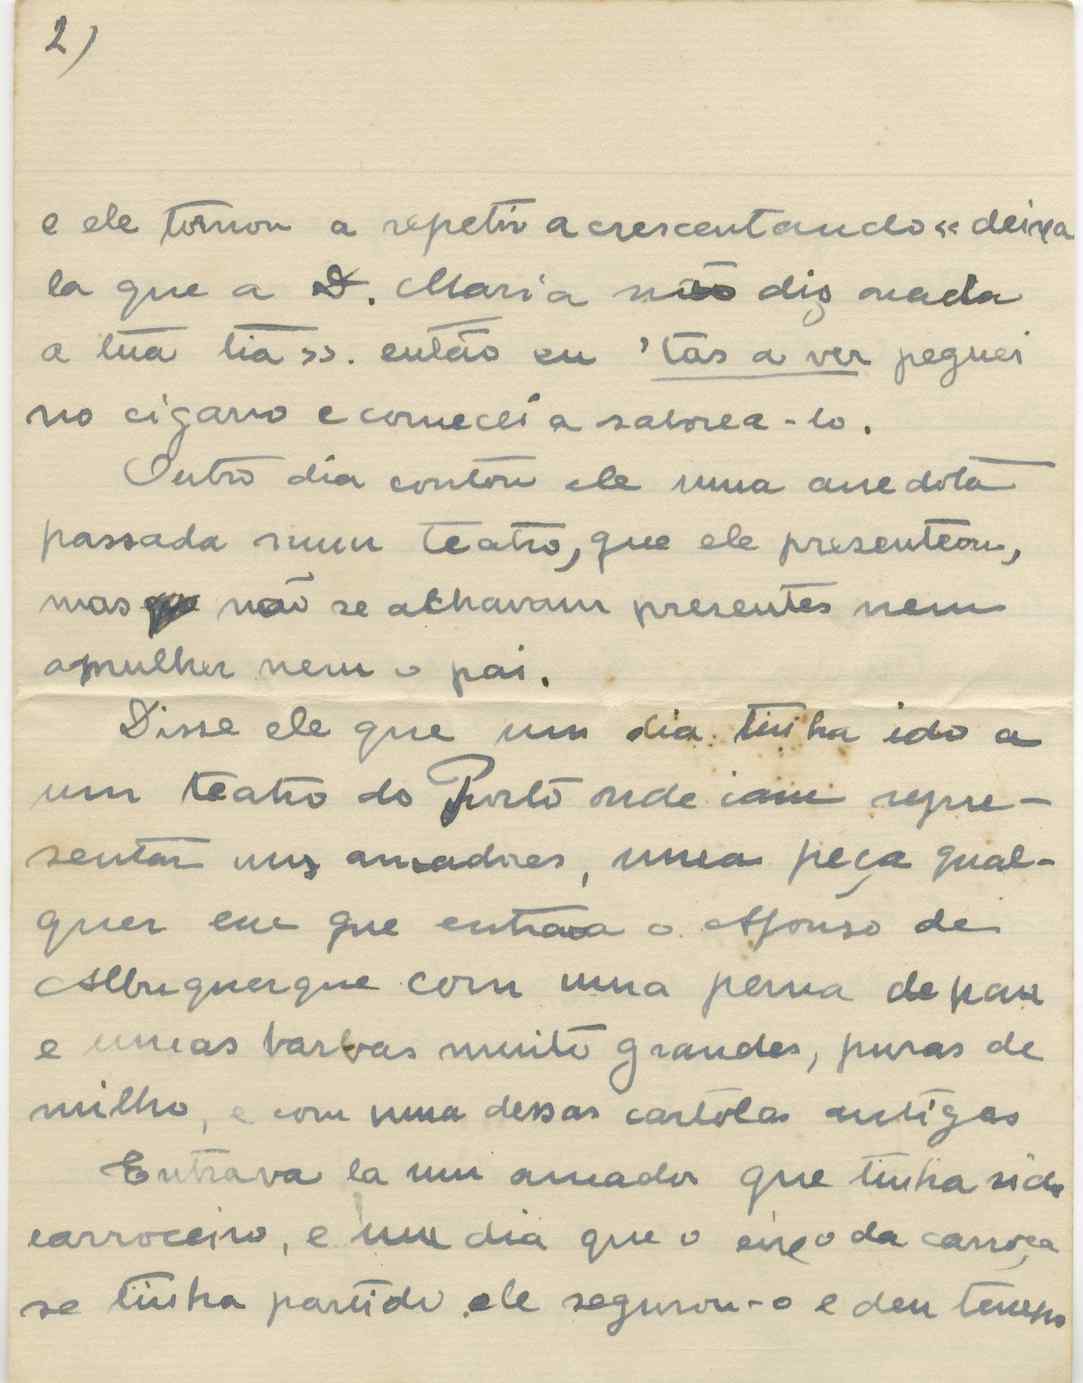 2)
e ele tornou a repetir acrescentando «deixa
la que a D. Maria não diz nada
a tua tia». então eu 'tás a ver peguei
no cigarro e comecei a saborea-lo.
Outro dia contou ele uma anedota
passada num teatro, que ele presenteou,
mas não se achavam presentes nem
a mulher nem o pai.
Disse ele que um dia tinha ido a
um teatro do Porto onde iam repre-
sentar uns amadores, uma peça qual-
quer em que entrava o Afonso de
Albuquerque com uma perna de pau
e umas barbas muito grandes, puras de
milho, e com uma dessas cartolas antigas
Entrava la um amador que tinha sido
carroceiro, e um dia que o eixo da carroça
se tinha partido ele segurou-o e deu tempo